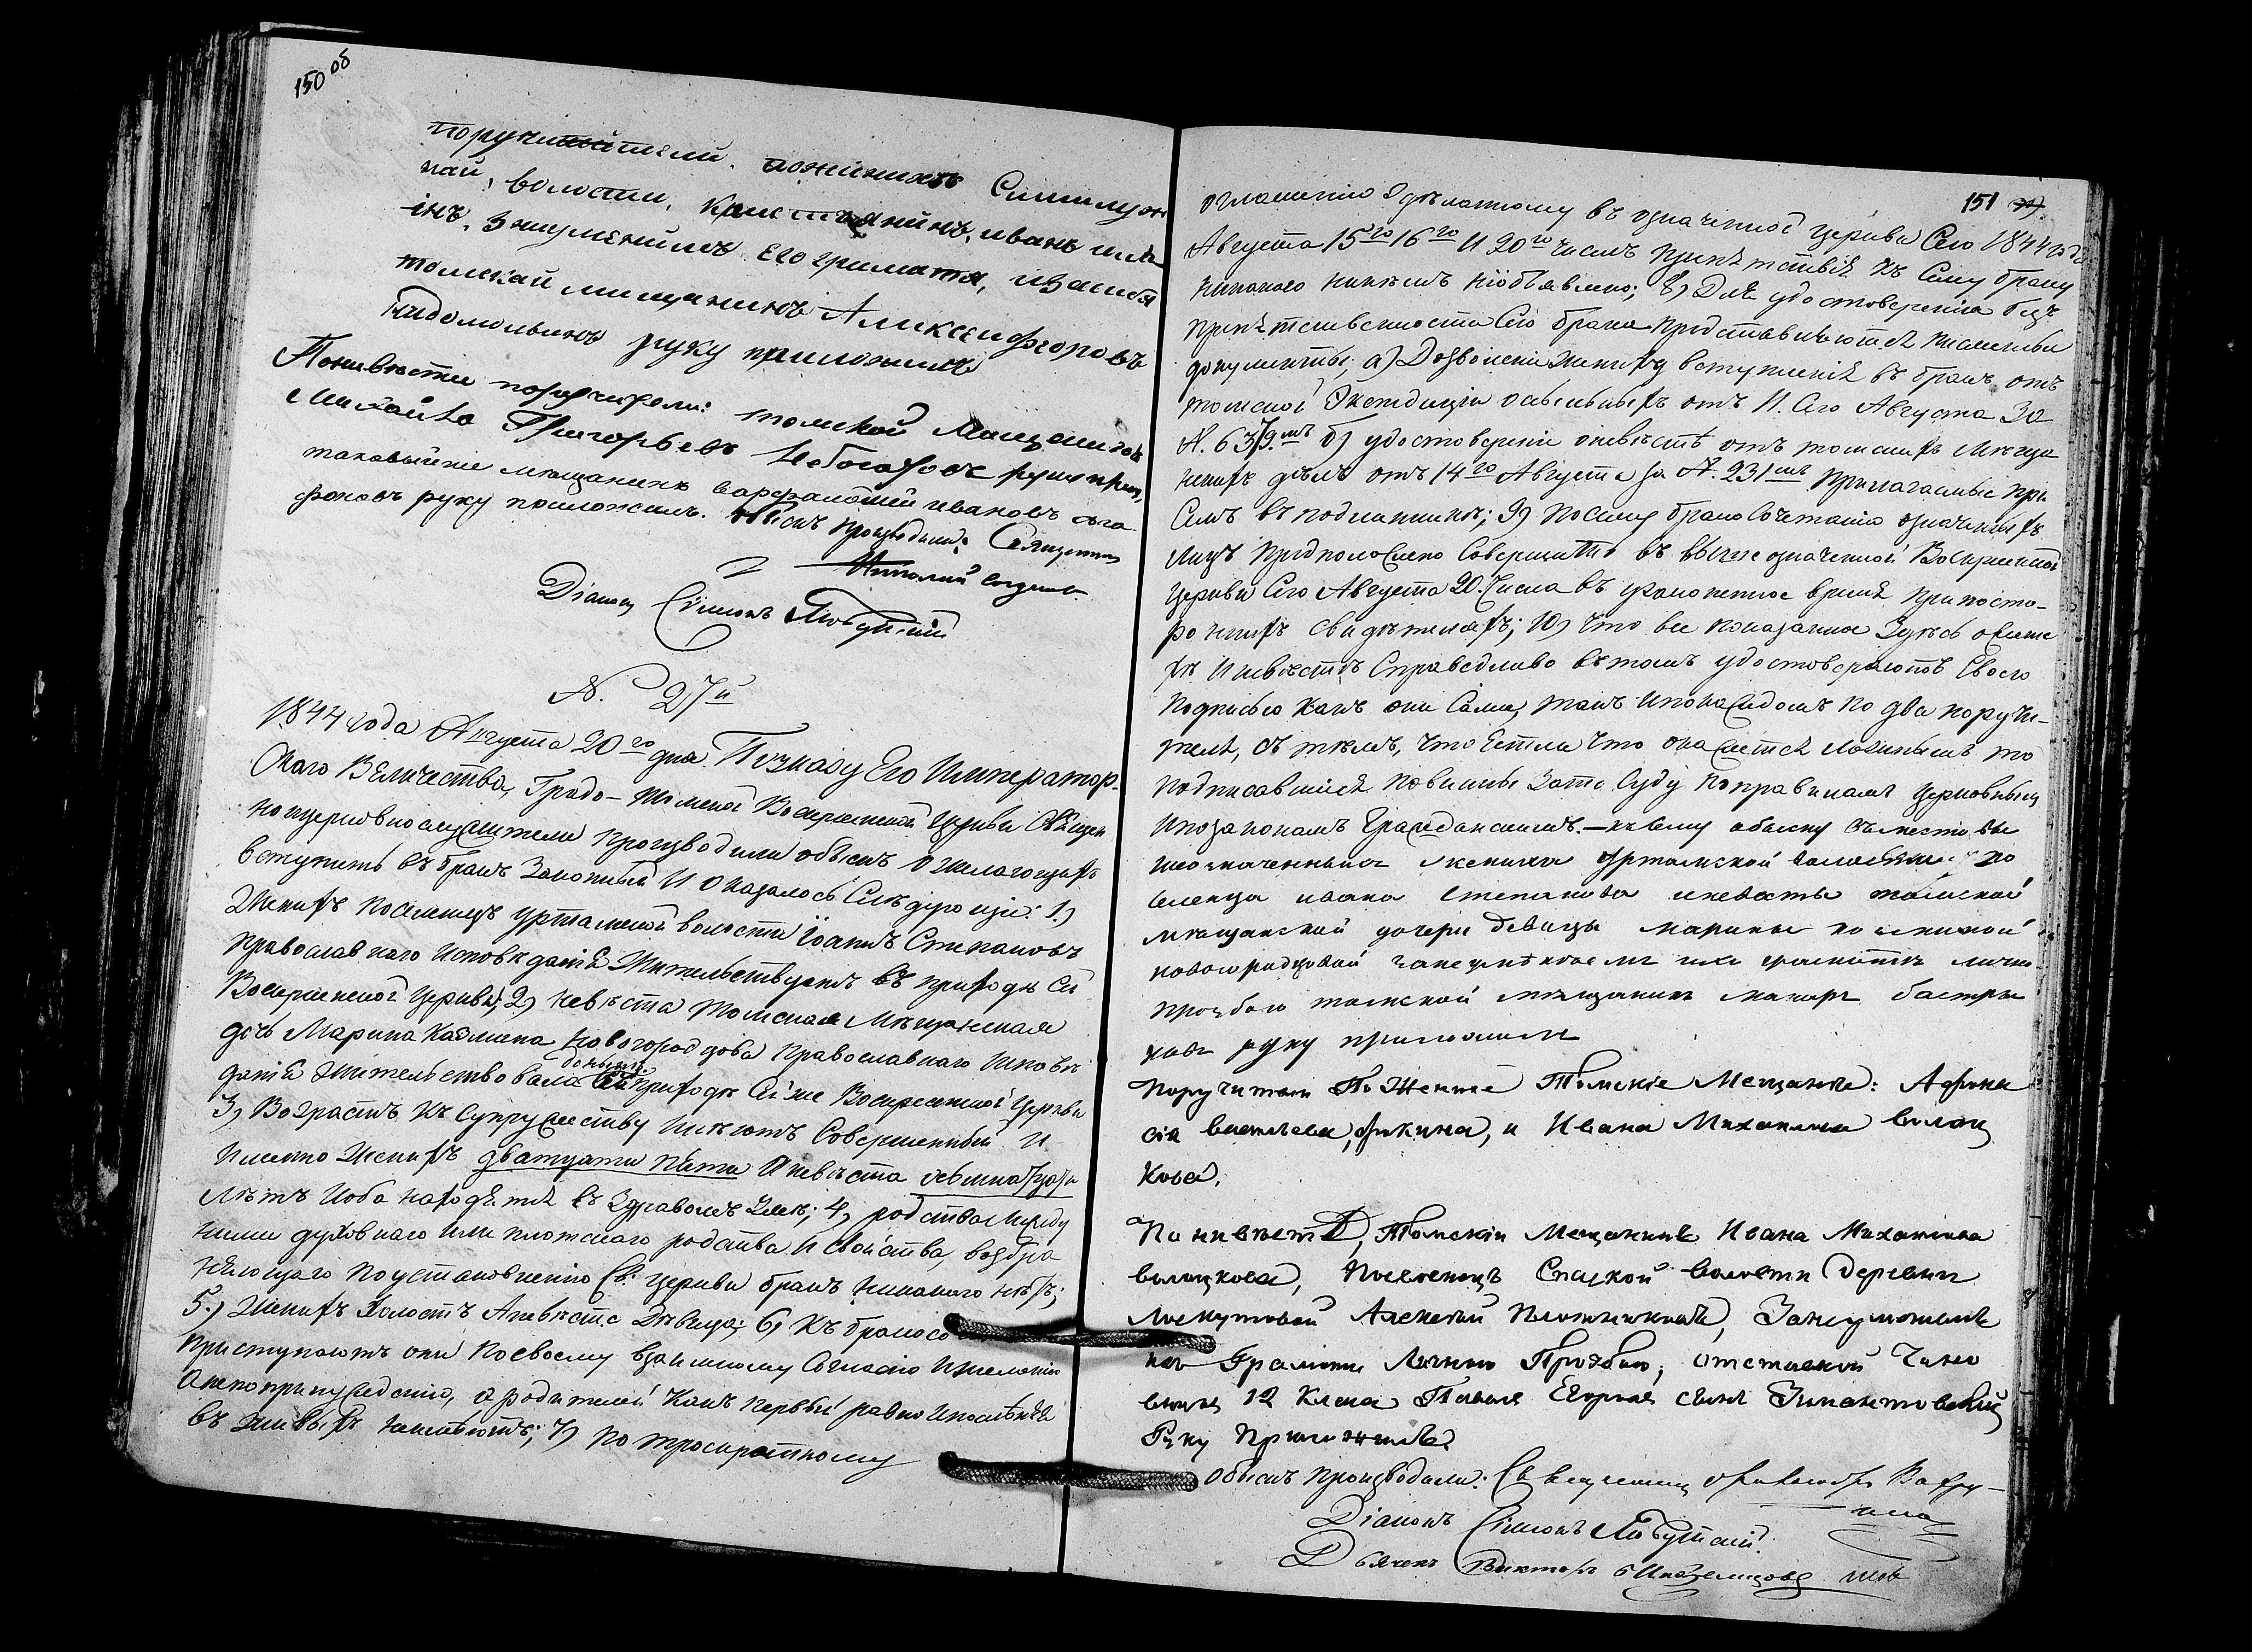 150 об
поручители. пожинихъ Симилуж
най, волости, крестьянинъ, иванъ
инъ, занеумениемъ его грамата, изасибя
томскай мищининъ Аликсеи Феоровъ
руку приложилъ
Поневѣсте поручители: томской Мещанинъ
Михайла Григорьевъ руку прил,
таковыйже мещанинъ варфаломей ивановъ
фоновъ руку положилъ. Обыскъ производили: Священникъ
Николай
Діаконъ Сімеонъ Любутскій
N. 27й
1844 года Августа 20го дня. По указу Его Император-
скаго Величества, Градо-Томской Воскресенской церкви Священ
ноцерковнослужители производили обыскъ о желающихъ
вступить въ бракъ Законный И оказалось Слѣдующіе: 1.)
Женихъ поселенецъ Уртамской волости Іоаннъ Степановъ
православнаго исповѣданія Жительствуетъ въ приходѣ Сей
Воскресенской Церкви; 2) невѣста Томская Мѣщанская
дочь Марина Казмина Новогородцова православнаго исповѣ
данія Жительствовала донынѣ въ приходѣ Сей же Воскресенской Церкви
3) Возрастъ къ Супружеству Имѣютъ Совершенный И
Именно Женихъ дватцати пяти А невѣста
лѣтъ И оба находятся въ Здравомъ Умѣ; 4) родства Между
ними духовнаго или плотскаго родства И свойства, возбра
няющаго по установленію Св: церкви бракъ никакого нѣтъ;
5.) Женихъ Холостъ А невѣста Дѣвица; 6) Къ бракосо
приступаютъ они по своему взаимному Согласію И желанію
А не по принужденію, а родителей Какъ первый равно И послѣдняя
въ живыхъ неимѣютъ; 7) по троекратному
151
оглашенію Здѣланному въ означенной церкви Сего 1844 года
Августа 15го 16го И 20го числъ препятствія къ Сему браку
никакого никѣмъ необъявлено; 8) Для удостоверенія безъ
препятственности Сего брака предтавляются писменные
документы; а) Дозволеніе Жениху вступленія въ бракъ отъ
томской Экспедиціи осыльныхъ отъ 11. Сего Августа За
N. 6379.мъ б) удостовереніе о невѣстѣ отъ томскихъ Мѣща
нскихъ дѣлъ отъ 14го Августа за N. 231мъ прилагаемые при
Семъ въ подлинникѣ; 9) посему бракосочетаніе означенныхъ
Лицъ предположено Совершить въ вышеозначенной Воскресенской
Церкви Сего Августа 20. Числа въ узаконенное время при посто-
роннихъ свидѣтеляхъ; 10) Что все показанное Здѣсь о Жени
хѣ И невѣстѣ Справедливо въ томъ удостоверяютъ Своею
подписью какъ они Сами, такъ И по каждомъ по два поручи-
теля, съ тѣмъ, что Естли что окажется ложнымъ то
подписавшіеся повинны Зато Суду по правиламъ Церковнымъ
И по законамъ Гражданскимъ. — къ сему обыску вместо вы
шеозначеннаго жениха Уртамской волости по
селенца ивана степанова иневесты томской
мещанской дочери девицы марины козминой
новогородцовой занеумѣниемъ ихъ граматѣ личною
прозбою томской мещанинъ макаръ
ковъ руку приложилъ
поручители По Женихѣ Томскіе Мещанѣ: Афона
сія васильева, фикина, и Ивана Михаилова волоц
кова.
По нивѣстѣ, Томскіи Мещанинъ Ивана Михаилова
волоцкова, Поселенецъ Спаской волости Деревни
Алексѣй Плотниковъ, Занеумениемъ
ихъ Грамоти Личною Прозбою, отставной Чино
вникъ 12 Класа Павелъ Егоровъ сынъ
Руку Приложилъ.
Обыскъ производили: Священникъ
Діаконъ Сімеонъ Любутскій
Дьячекъ Викторъ